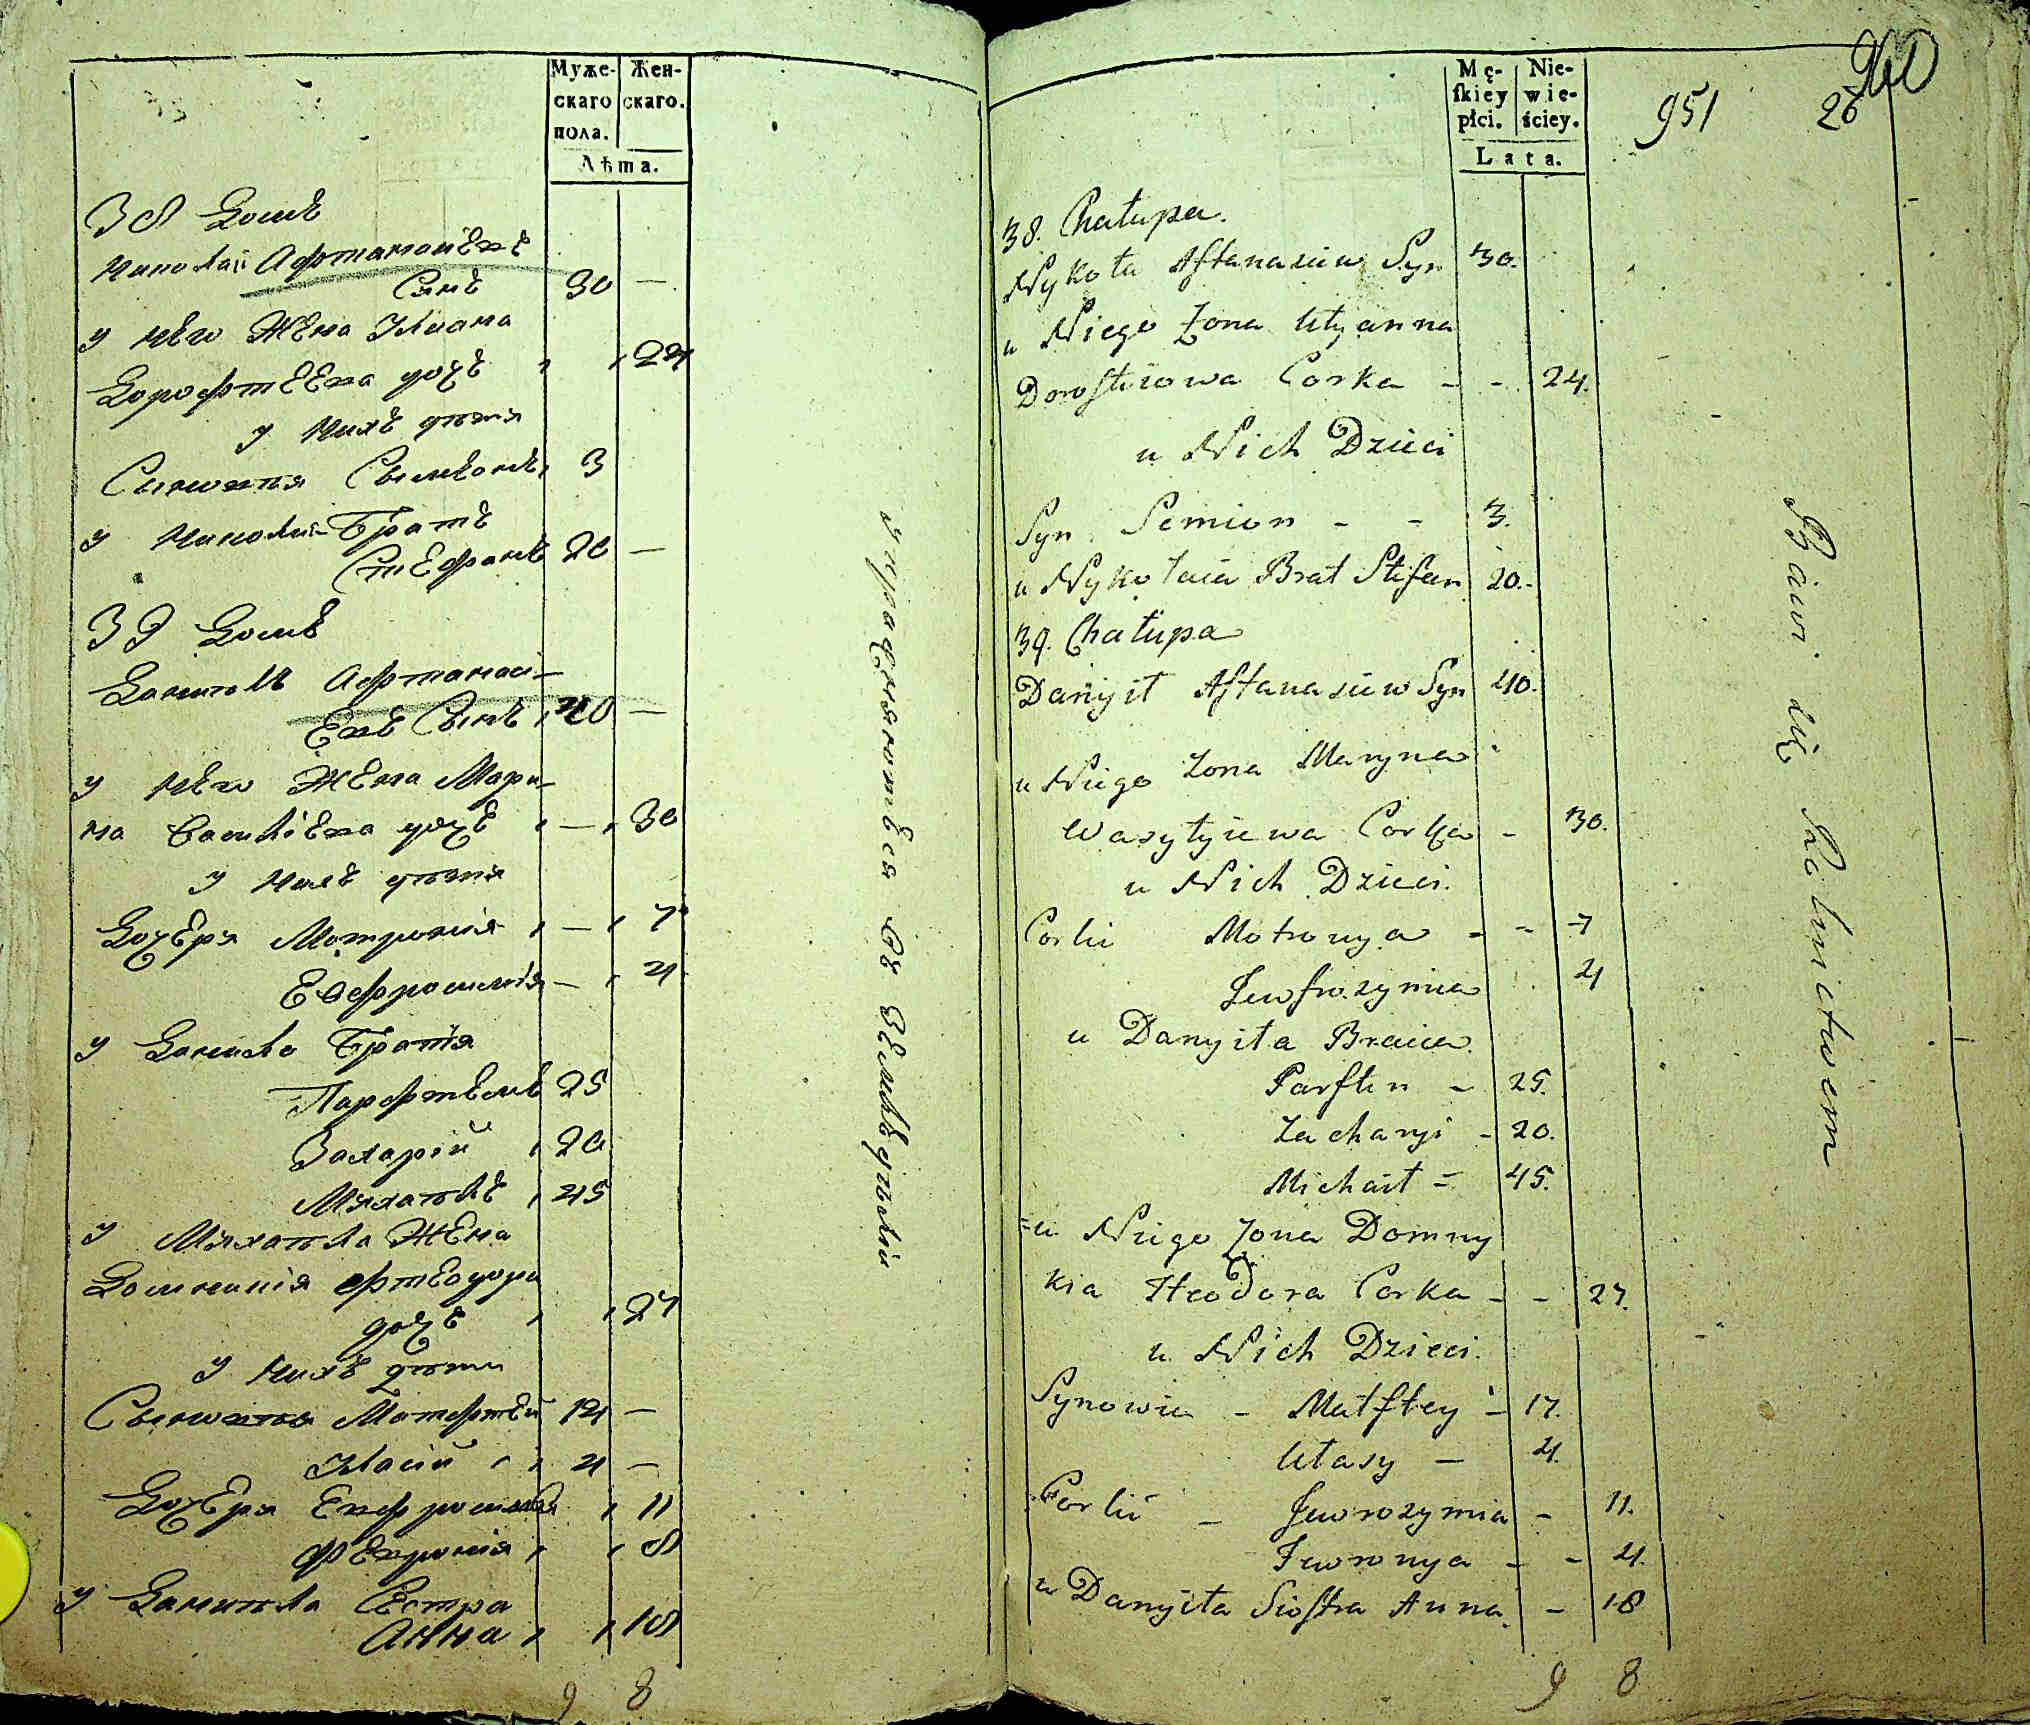 Муже-
скаго
пола.
Жен-
скаго.
Лѣта.
38 Домъ
Николай Афтанасіевъ
Сынъ 30 —
у него Жена Уліана
Дорофтеева дочь 24
у нихъ дѣти
Сыновья Сымеонъ 3
у Николая Братъ
Стефанъ 20 —
39 Домъ
Данiилъ Афтанасі-
евъ Сынъ 40 —
у него Жена Мари-
на Василіева дочь — 30
у нихъ дѣти
Дочеря Мотронія — 7
Евфросинія — 4
у Данила Братія
Парфтенъ 25
Захарій 20
Михаилъ 45
у Михаила Жена
Домникія Фтеодора
дочь 27
у нихъ дѣти
Сыновья Матфтей 14 —
Уласій 4 —
Дочеря Евфросинія 11
Февронія 8
у Даниила Сестра
Анна 18
9 8
упражняются въ земледѣлїи
Mę-
skiey
płci.
Nie-
wie-
ściey.
Lata.
951
26
960
38. Chałupa.
Nykoła Aftanasiiw Syn 30.
u Niego Żona Ulyanna
Doroftiiowa Corka - - 24.
u Nich Dzieci
Syn Semion - - 3.
u Nykołaia Brat Stefan 20.-
39. Chałupa
Danyił Aftanasiiw Syn 40.
u Niego Żona Maryna
Wasylyiewa Corka - 30.
u Nich Dzieci.
Corki Motronya - - 7
Jewfrozymia 4
u Danyiła Bracia
Parften - 25.
Zacharyi - 20.
Michaił = 45.
=u Niego Żona Domny
kia Fteodora Corka - - 27.
u Nich Dzieci.
Synowie - Matftey - 17.
Ułasy - 4.
Corki - Jewrozymia - 11.
Jewronya - - 4.
u Danyiła Siostra Anna - 18
9 8
Bawi się Rolnictwem